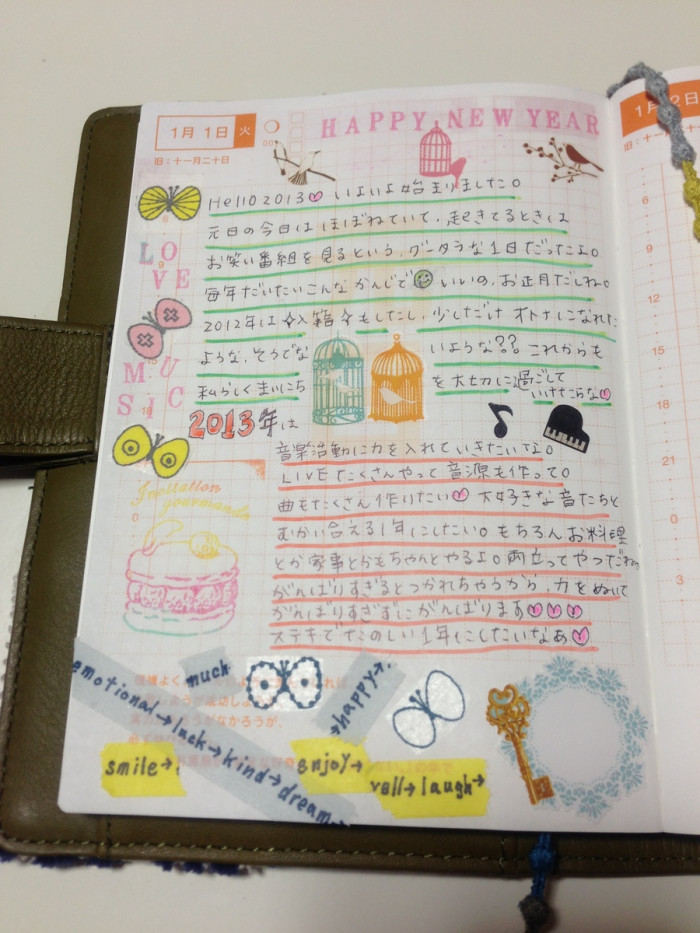 1月 1日 火
旧：十一月二十日
HAPPY NEW YEAR
1月 2日
旧：十一月
Hello 2013 いよいよ始まりました。
元日の今日は ほぼねていて、起きてるときは
お笑い番組を見るという、グータラな1日だったよ。
毎年だいたいこんなかんじで いいの。お正月だしね。
2012年は 入籍 もしたし、少しだけ オトナになれた
ような、そうでな いような?? これからも
私らしく まいにち を大切に過ごして
いけたらな
LOVE
MUSIC
2013年は
音楽活動に力を入れていきたいよ。
LIVEたくさんやって 音源も作って。
曲もたくさん作りたい 大好きな音たちと
むかい合える1年にしたい。もちろんお料理
とか家事とかもちゃんとやるよ。両立ってやつだね
がんばりすぎるとつかれちゃうから、力をぬいて
がんばりすぎずにがんばります
ステキでたのしい1年にしたいなあ
Invitation
gourmande
emotional→luck→kind→dream→
much
happy→
smile→
enjoy→
yell→laugh→
6
9
12
15
18
21
0
3